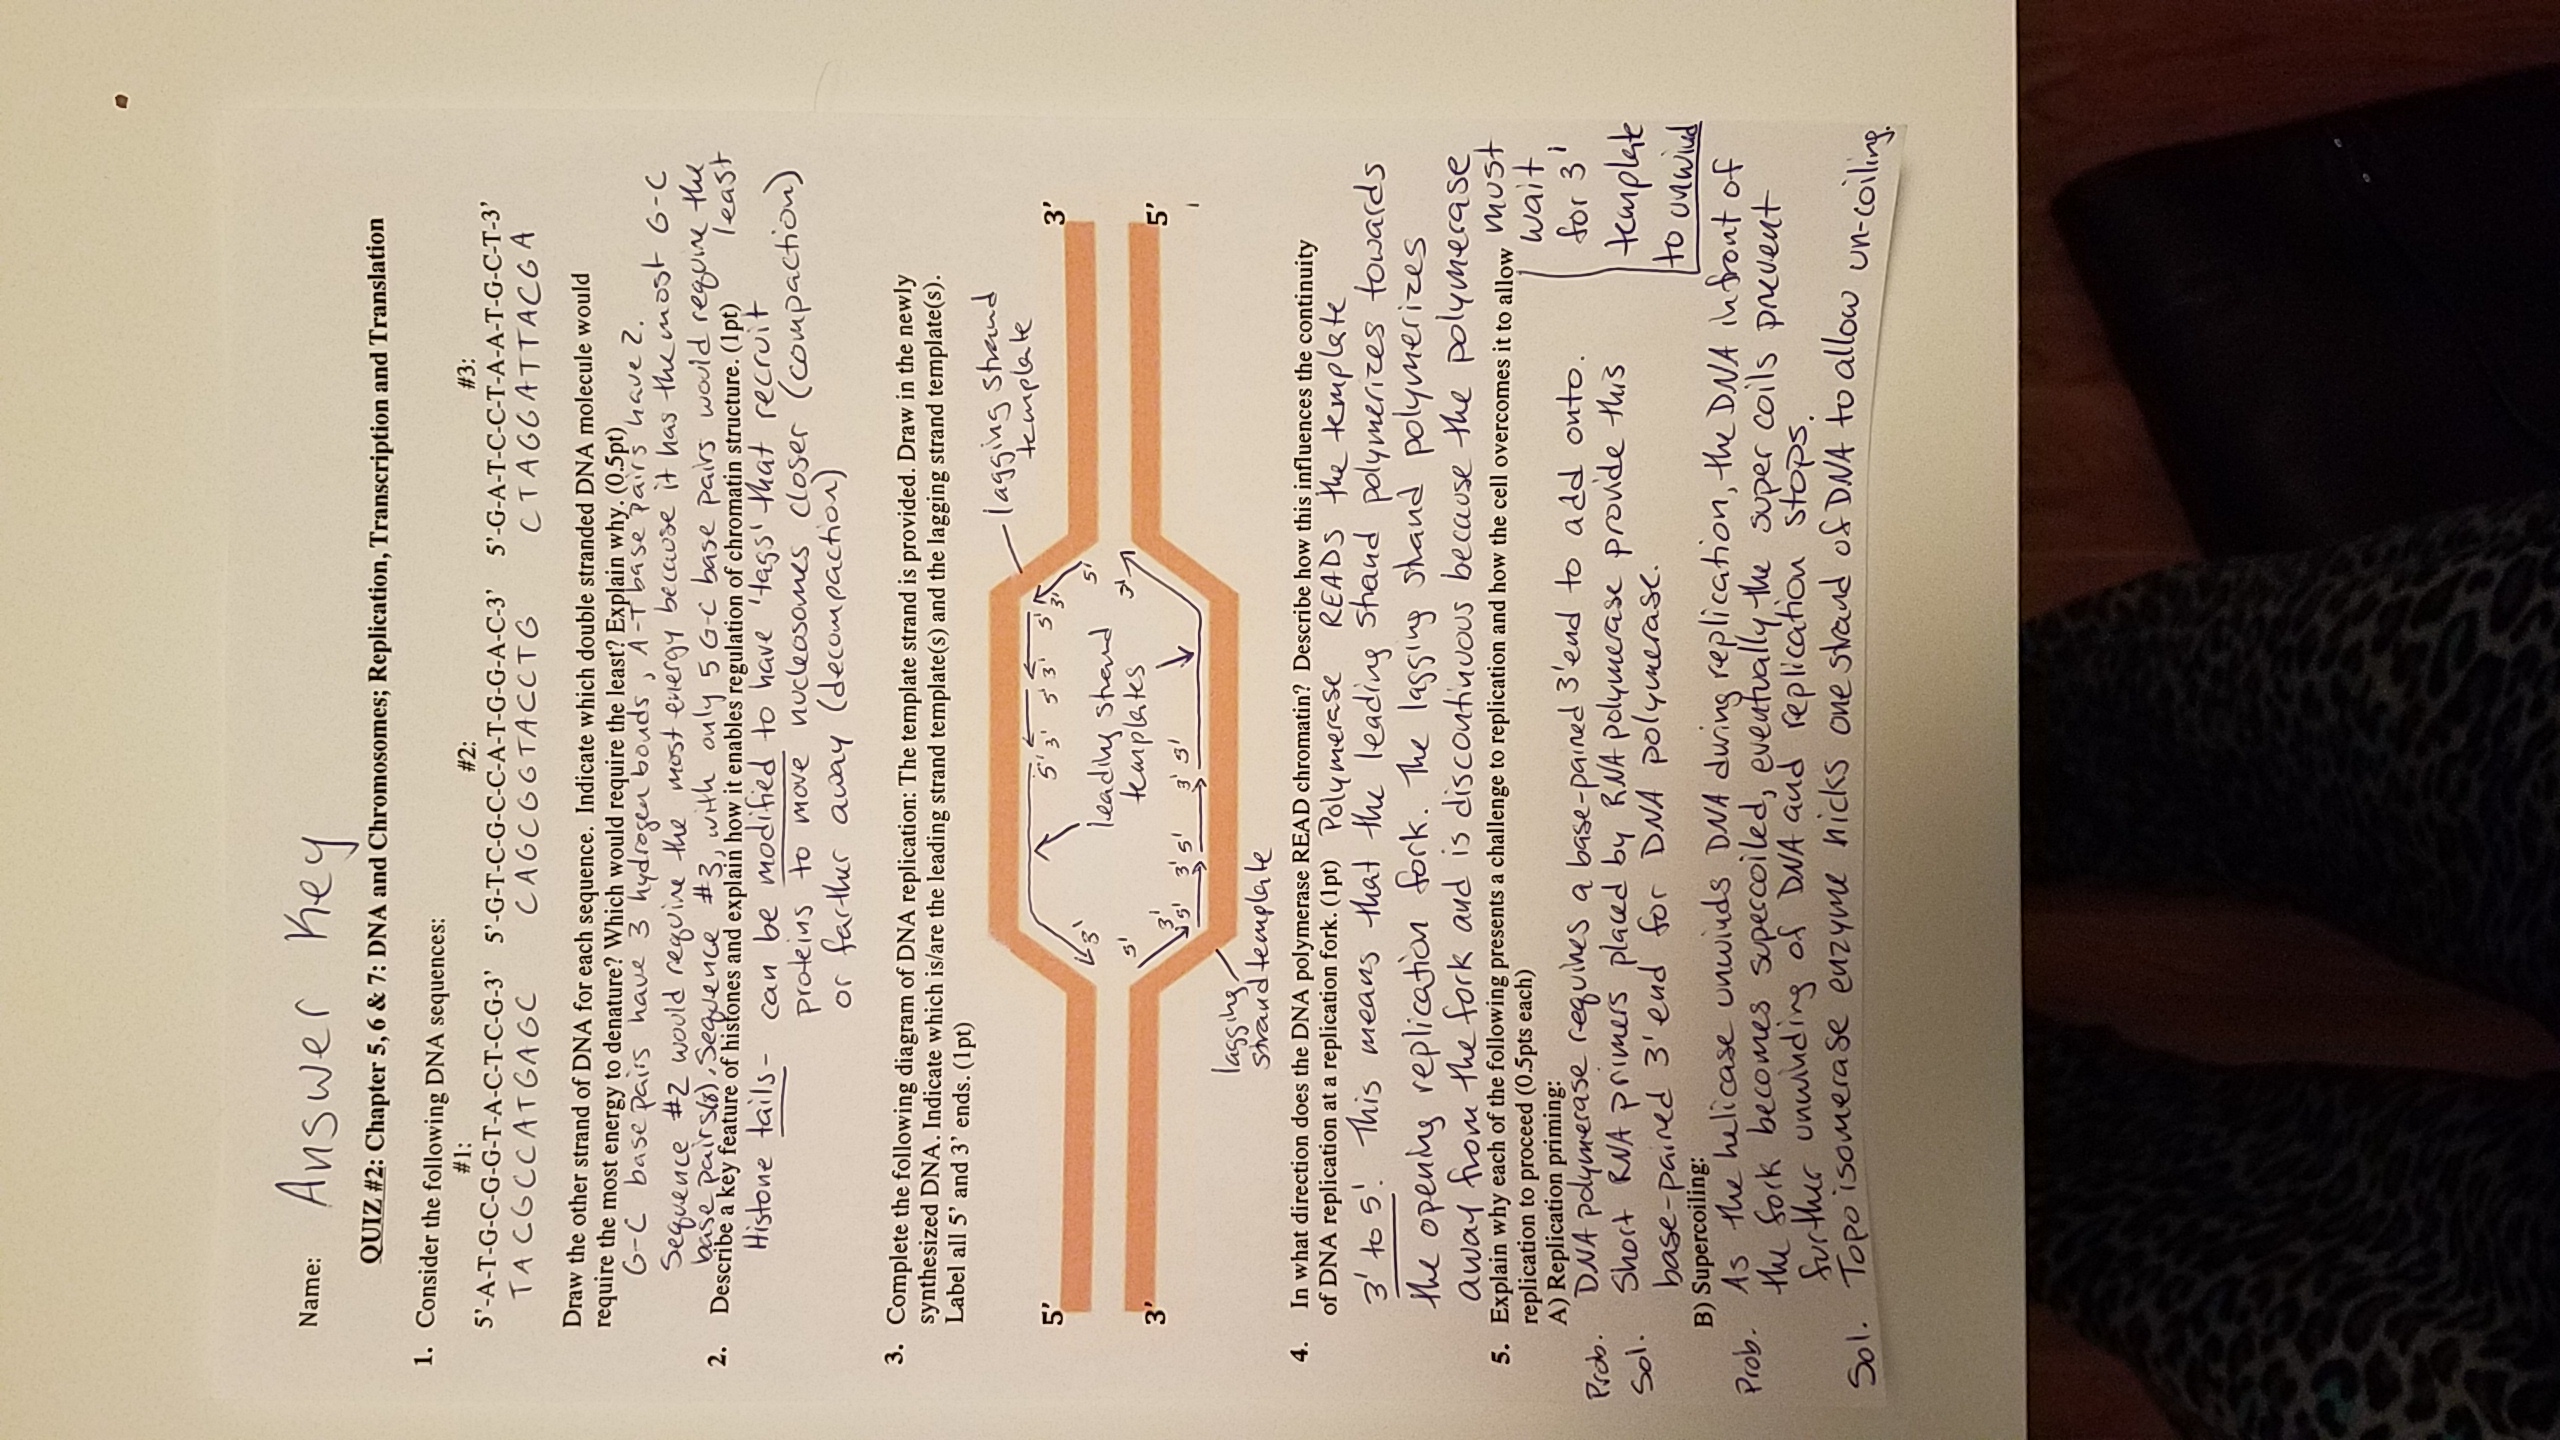 Name: Answer Key
QUIZ #2: Chapter 5, 6 & 7: DNA and Chromosomes; Replication, Transcription and Translation
1. Consider the following DNA sequences:
#1: #2: #3:
5'-A-T-G-C-G-G-T-A-C-T-C-G-3' 5'-G-T-C-G-C-C-A-T-G-G-A-C-3' 5'-G-A-T-C-C-T-A-A-T-G-C-T-3'
TACGCCATGAGC CAGCGGTACCTG CTAGGATTACGA
Draw the other strand of DNA for each sequence. Indicate which double stranded DNA molecule would
require the most energy to denature? Which would require the least? Explain why. (0.5pt)
G-C base pairs have 3 hydrogen bonds, A-T base pairs have 2.
Sequence #2 would require the most energy because it has the most G-C
base pairs(8). Sequence #3, with only 5 G-C base pairs would require the
least
2. Describe a key feature of histones and explain how it enables regulation of chromatin structure. (1pt)
Histone tails - can be modified to have 'tags' that recruit
proteins to move nucleosomes closer (compaction)
or farther away (decompaction)
3. Complete the following diagram of DNA replication: The template strand is provided. Draw in the newly
synthesized DNA. Indicate which is/are the leading strand template(s) and the lagging strand template(s).
Label all 5' and 3' ends. (1pt)
lagging strand
template
5' 3'
5' 3' 5' 3' 5' 3'
3' 5'
leading strand
templates
5' 3'
3' 5'
3' 5' 3' 5' 3' 5'
lagging
strand template
4. In what direction does the DNA polymerase READ chromatin? Describe how this influences the continuity
of DNA replication at a replication fork. (1pt) Polymerase READS the template
3' to 5'. This means that the leading strand polymerizes towards
the opening replication fork. The lagging strand polymerizes
away from the fork and is discontinuous because the polymerase
must
wait
for 3'
template
to unwind
5. Explain why each of the following presents a challenge to replication and how the cell overcomes it to allow
replication to proceed (0.5pts each)
A) Replication priming:
Prob. DNA polymerase requires a base-paired 3' end to add onto.
Sol. Short RNA primers placed by RNA polymerase provide this
base-paired 3' end for DNA polymerase.
B) Supercoiling:
Prob. As the helicase unwinds DNA during replication, the DNA in front of
the fork becomes supercoiled, eventually the super coils prevent
further unwinding of DNA and replication stops.
Sol. Topoisomerase enzyme nicks one strand of DNA to allow un-coiling.